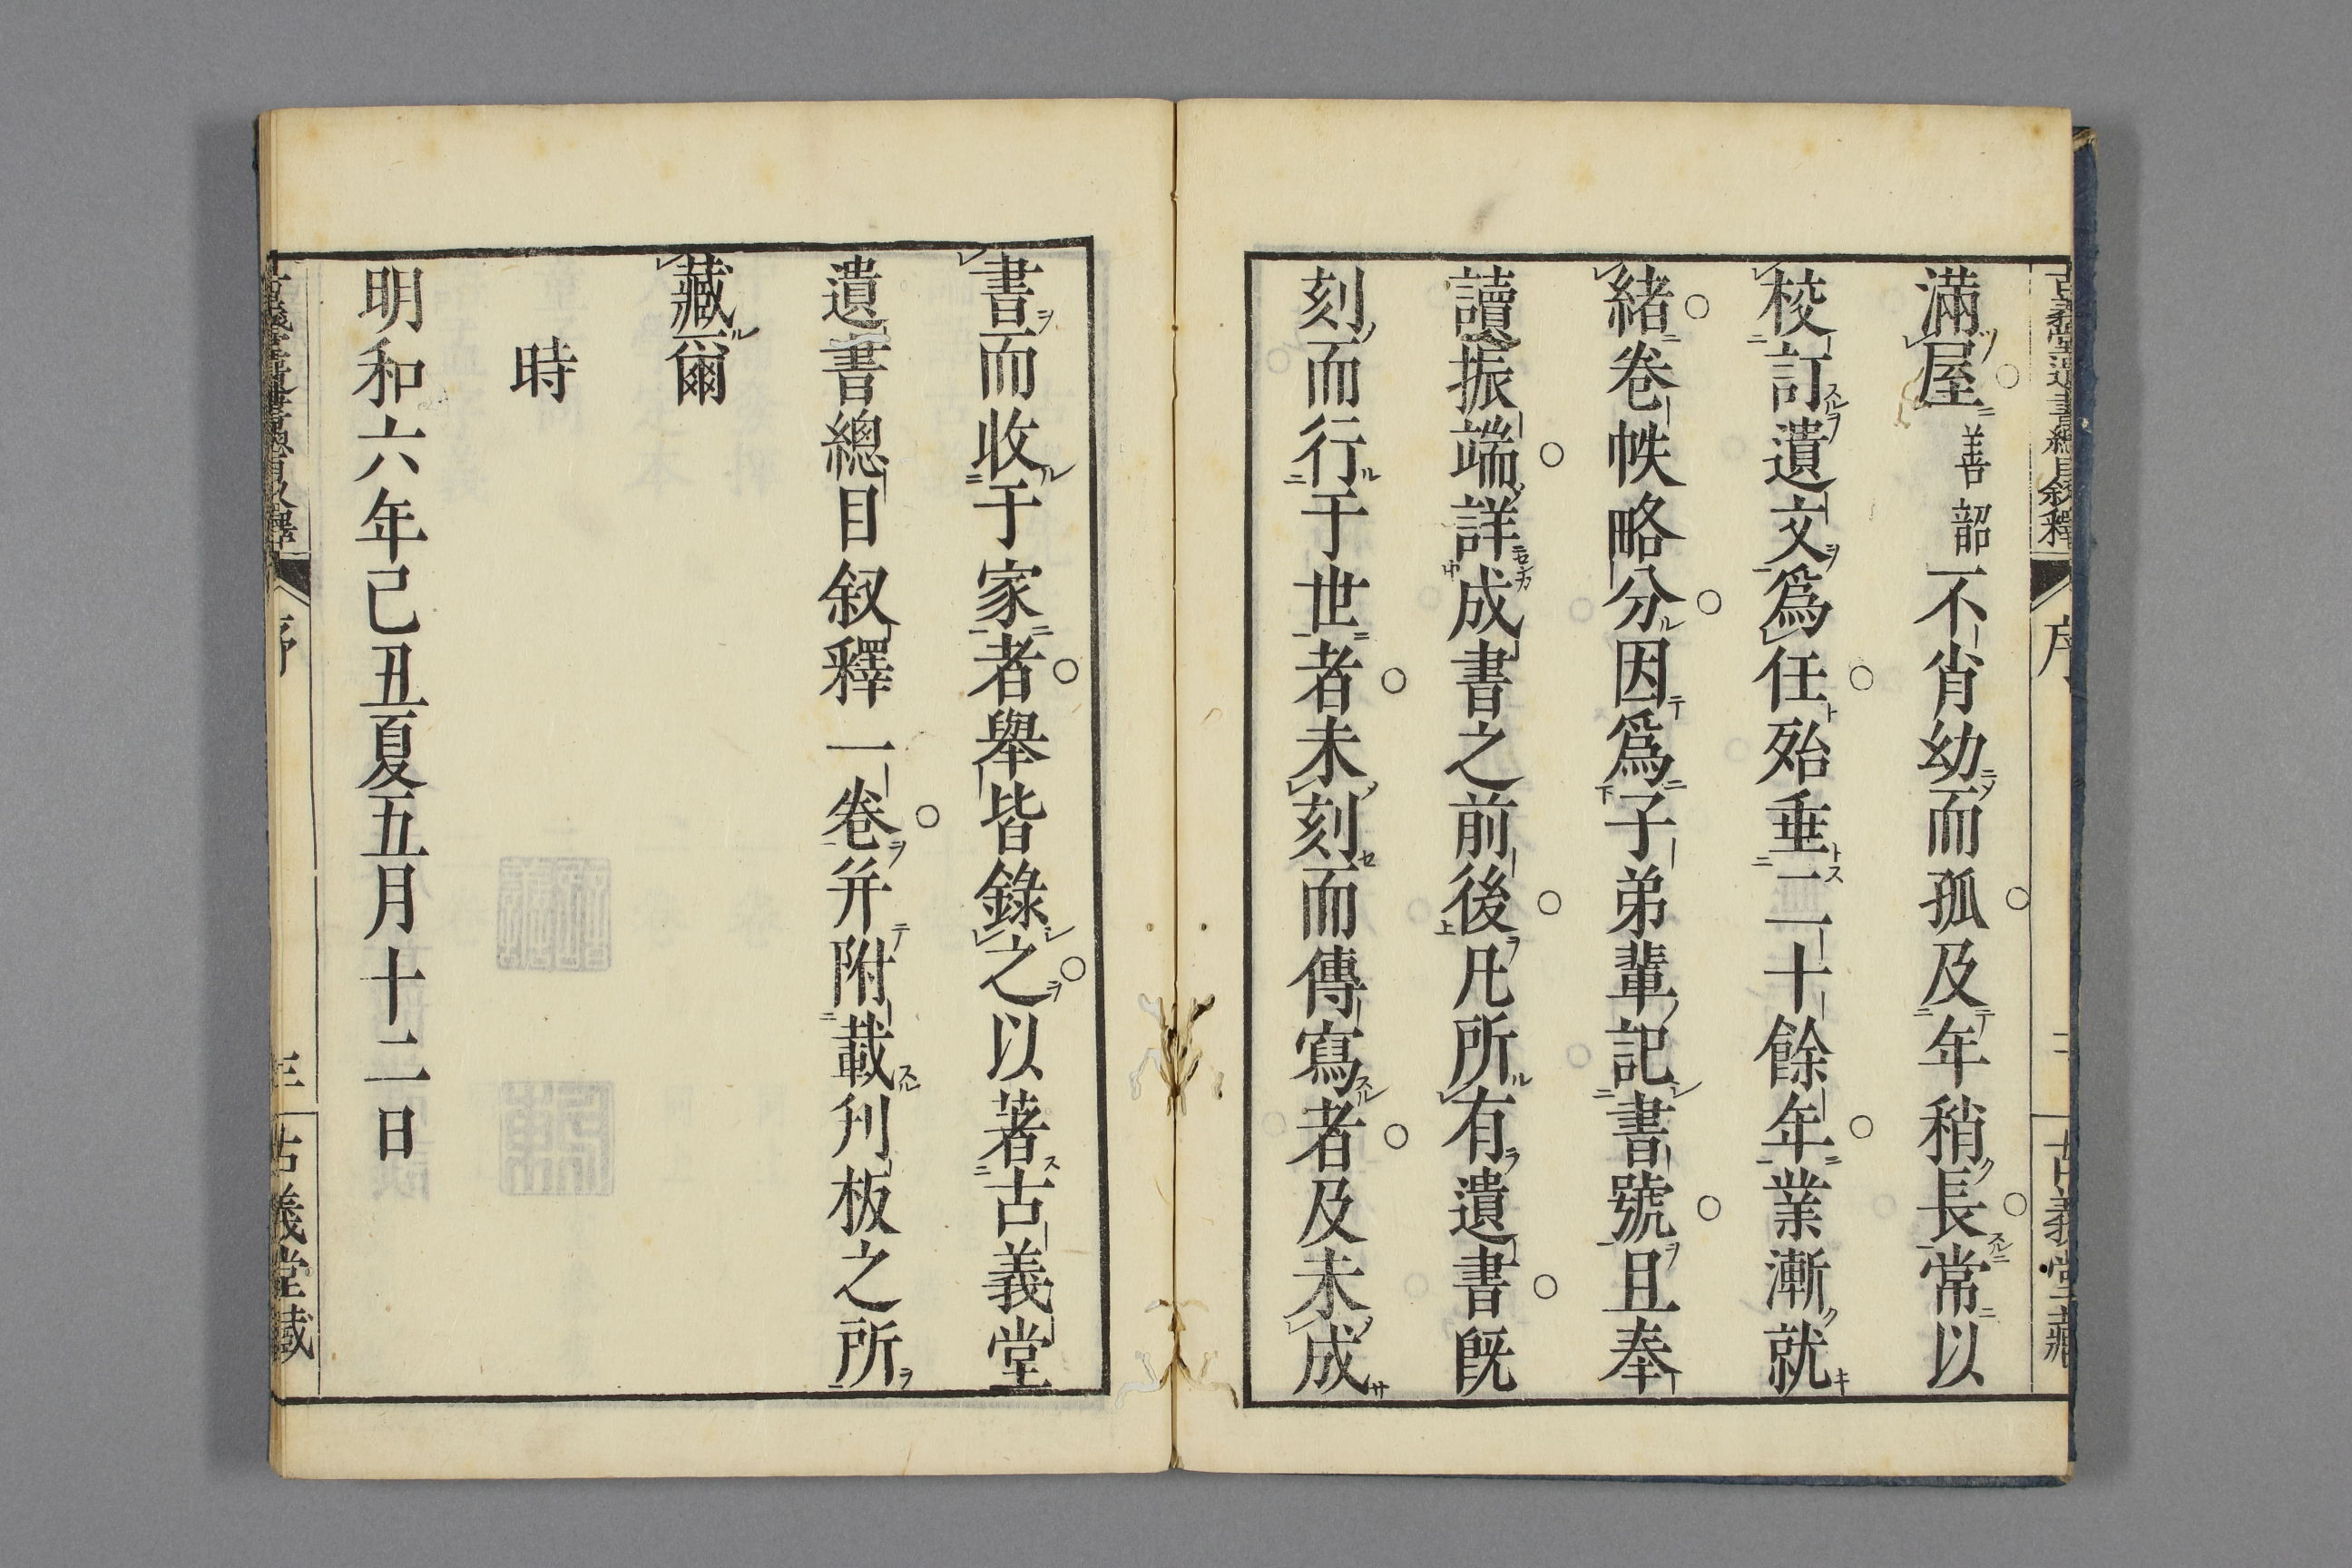 古義堂遺書總目叙釋 序 古義堂藏
滿屋善韶不肖幼而孤及年稍長常以
校訂遺文爲任殆垂二十餘年業漸就
緒卷帙略分因爲子弟輩記書號且奉
讀振端詳成書之前後凡所有遺書旣
刻而行于世者未刻而傳寫者及未成
書而收于家者舉皆錄之以著古義堂
遺書總目叙釋一卷并附載刋板之所
藏爾
時
明和六年己丑夏五月十二日
古義堂遺書總目叙釋 序 古義堂藏